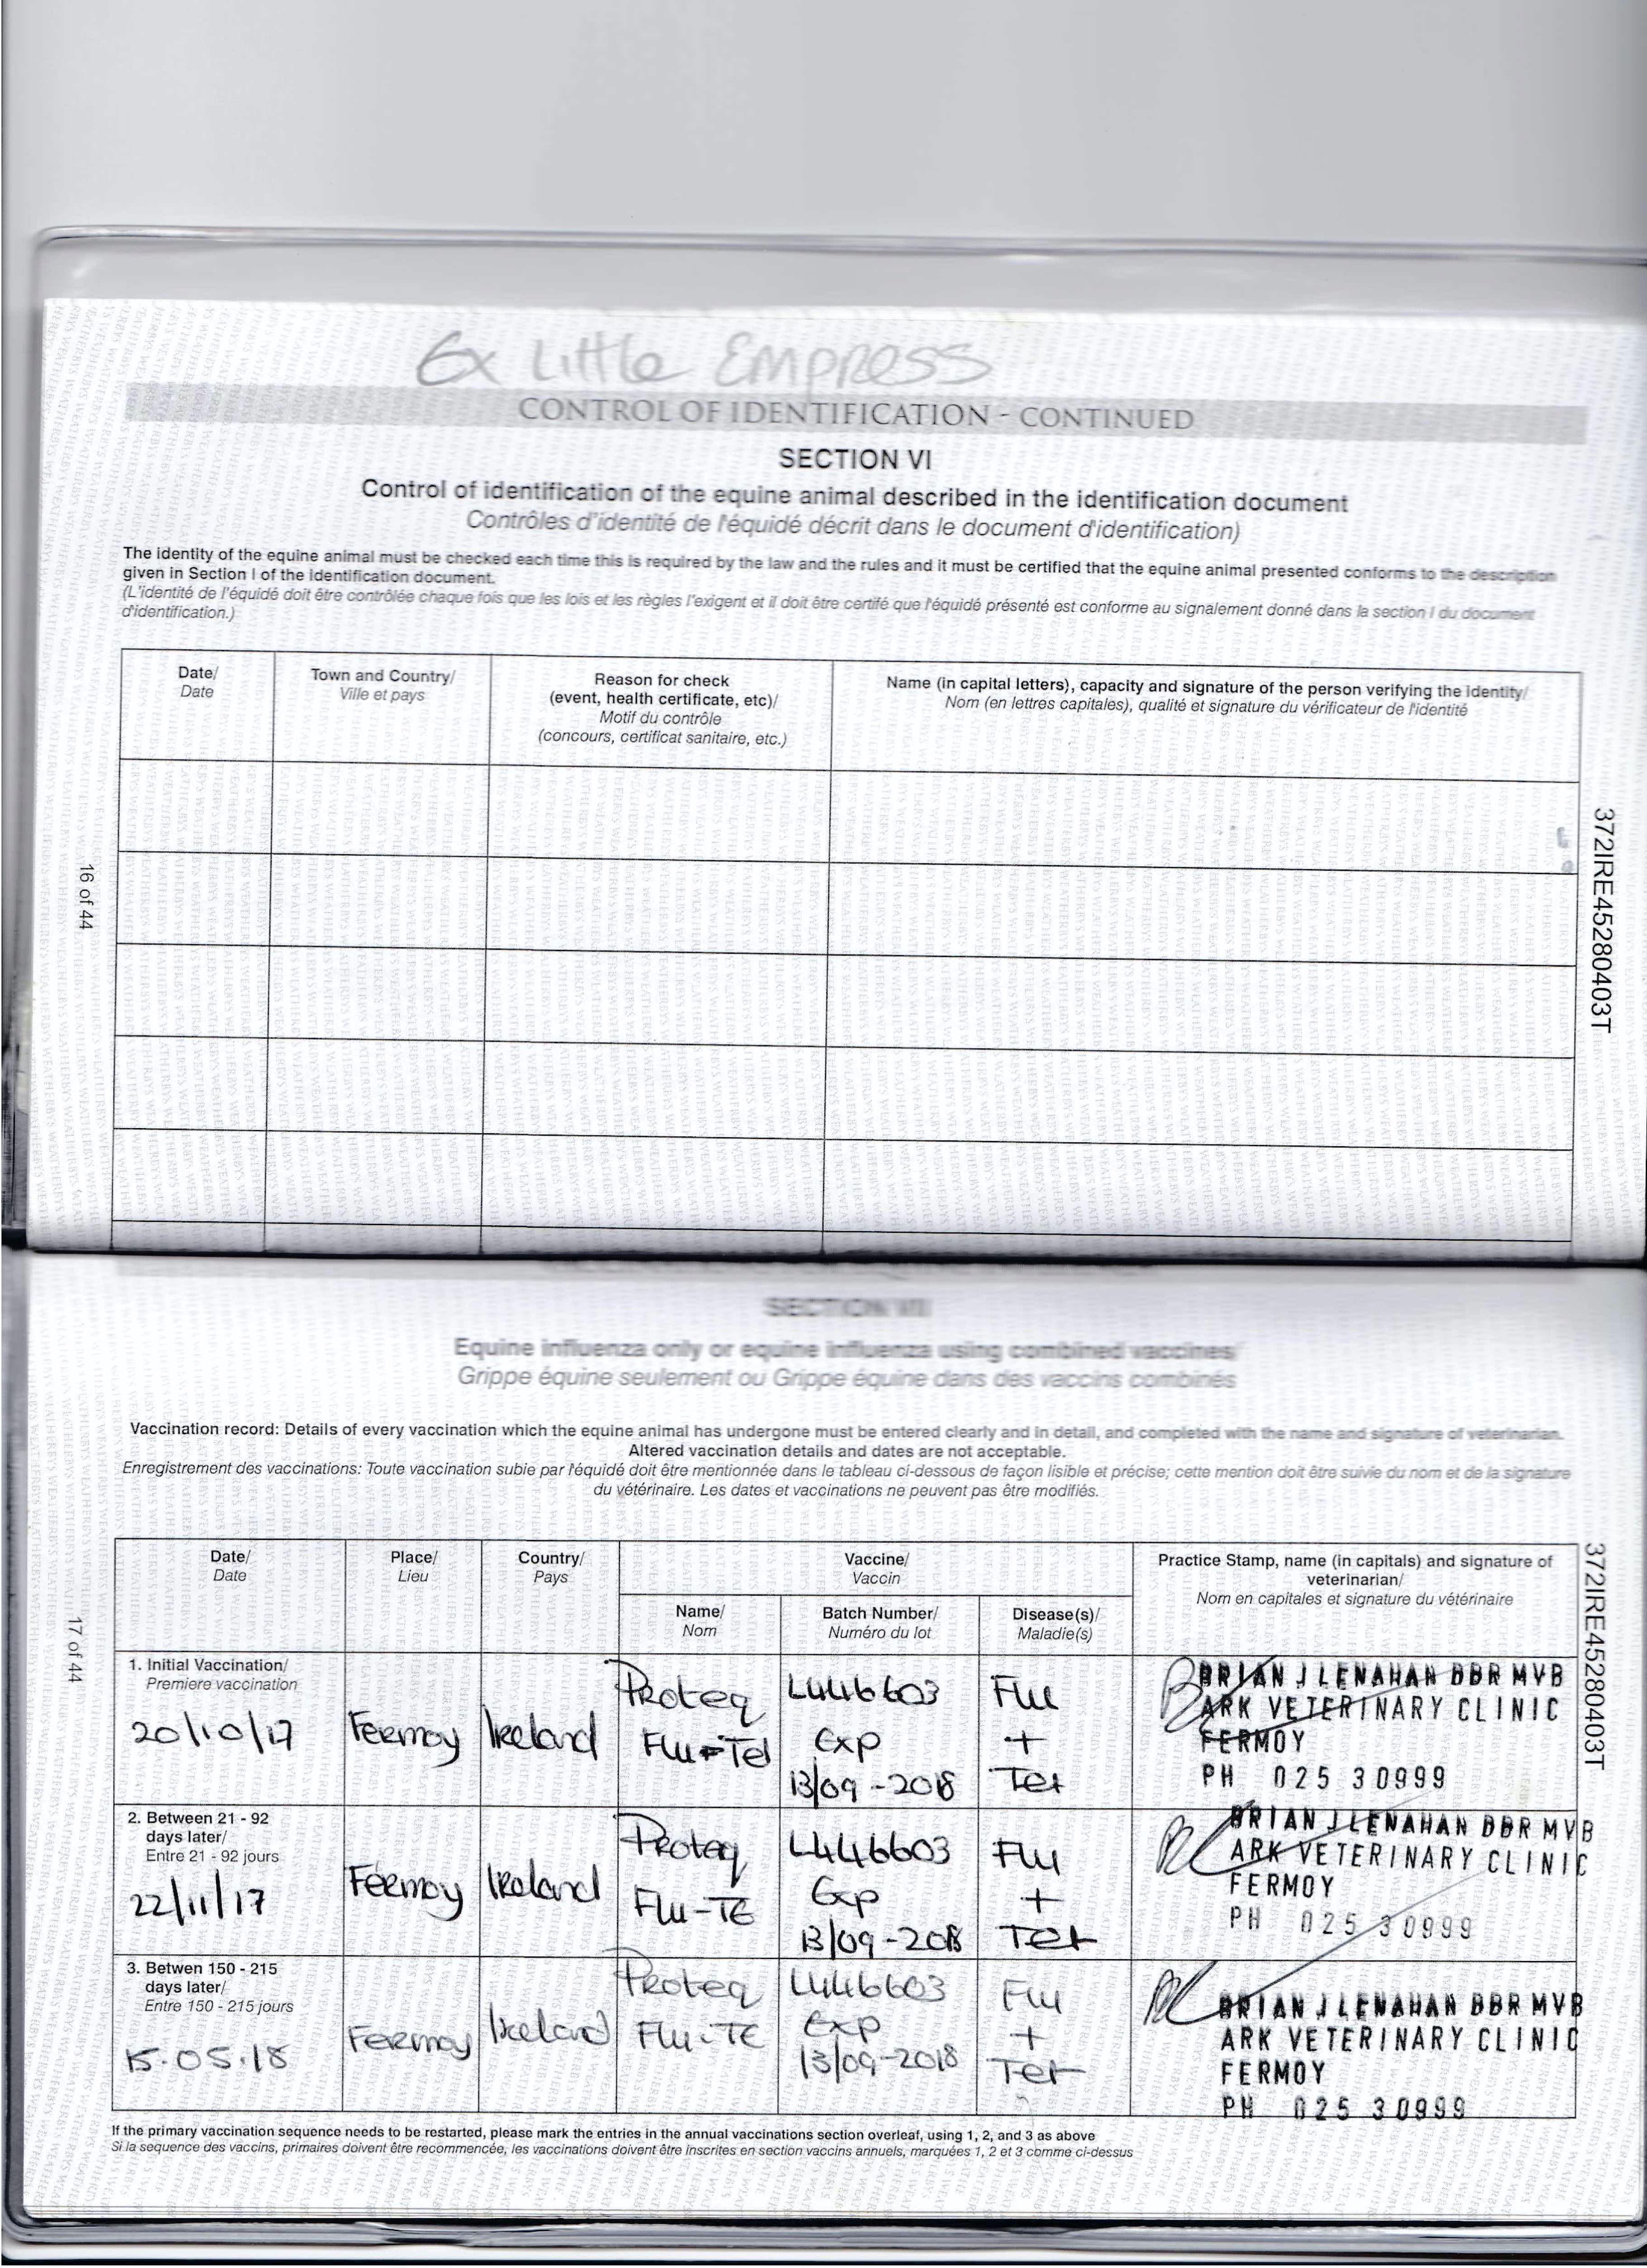 Ex Little Empress
CONTROL OF IDENTIFICATION - CONTINUED
SECTION VI
Control of identification of the equine animal described in the identification document
Contrôles d'identité de l'équidé décrit dans le document d'identification)
The identity of the equine animal must be checked each time this is required by the law and the rules and it must be certified that the equine animal presented conforms to the description
given in Section I of the identification document.
(L'identité de l'équidé doit être contrôlée chaque fois que les lois et les règles l'exigent et il doit être certifé que l'équidé présenté est conforme au signalement donné dans la section I du document
d'identification.)
Date/
Date
Town and Country/
Ville et pays
Reason for check
(event, health certificate, etc)/
Motif du contrôle
(concours, certificat sanitaire, etc.)
Name (in capital letters), capacity and signature of the person verifying the identity/
Nom (en lettres capitales), qualité et signature du vérificateur de l'identité
16 of 44
372IRE45280403T
SECTION VII
Equine influenza only or equine influenza using combined vaccines/
Grippe équine seulement ou Grippe équine dans des vaccins combinés
Vaccination record: Details of every vaccination which the equine animal has undergone must be entered clearly and in detail, and completed with the name and signature of veterinarian.
Altered vaccination details and dates are not acceptable.
Enregistrement des vaccinations: Toute vaccination subie par l'équidé doit être mentionnée dans le tableau ci-dessous de façon lisible et précise; cette mention doit être suivie du nom et de la signature
du vétérinaire. Les dates et vaccinations ne peuvent pas être modifiés.
Date/
Date
Place/
Lieu
Country/
Pays
Vaccine/
Vaccin
Name/
Nom
Batch Number/
Numéro du lot
Disease(s)/
Maladie(s)
Practice Stamp, name (in capitals) and signature of
veterinarian/
Nom en capitales et signature du vétérinaire
1. Initial Vaccination/
Premiere vaccination
20/10/17
Fermoy
Ireland
Proteq
Flu-Te
L446603
Exp
13/09-2018
Flu
+
Tet
BRIAN J LENAHAN BBR MVB
ARK VETERINARY CLINIC
FERMOY
PH 025 30999
2. Between 21 - 92
days later/
Entre 21 - 92 jours
22/11/17
Fermoy
Ireland
Proteq
Flu-TE
L446603
Exp
13/09-2018
Flu
+
Tet
BRIAN J LENAHAN BBR MVB
ARK VETERINARY CLINIC
FERMOY
PH 025 30999
3. Betwen 150 - 215
days later/
Entre 150 - 215 jours
15.05.18
Fermoy
Ireland
Proteq
Flu-TE
L446603
Exp
13/09-2018
Flu
+
Tet
BRIAN J LENAHAN BBR MVB
ARK VETERINARY CLINIC
FERMOY
PH 025 30999
17 of 44
372IRE45280403T
If the primary vaccination sequence needs to be restarted, please mark the entries in the annual vaccinations section overleaf, using 1, 2, and 3 as above
Si la sequence des vaccins, primaires doivent être recommencée, les vaccinations doivent être inscrites en section vaccins annuels, marquées 1, 2 et 3 comme ci-dessus